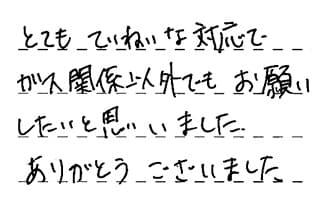 とても ていねいな対応で
ガス関係以外でも お願い
したいと思いました.
ありがとう ございました